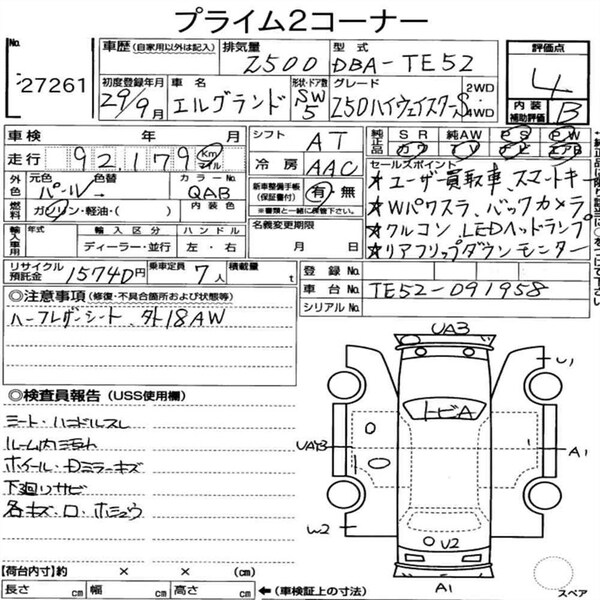 プライム2コーナー
No.
27261
車歴 (自家用以外は記入)
排気量
2500
型式
DBA-TE52
評価点
4
初度登録年月
29/9月
車名
エルグランド
形状・ドア数
SW
5
グレード
250ハイウェイスターS
2WD
4WD
内装
補助評価
B
車検 年 月
シフト AT
純正品 SR 純AW PS PW
カワ TV ナビ エアB
走行 92,179 Km マイル
冷房 AAC
セールスポイント
外色 元色 色替 カラーNo.
パール→ QAB
新車整備手帳
(保証書付)
有・無
※書類と一緒に保管下さい
★ユーザー買取車、スマートキー
★Wパワスラ、バックカメラ
燃料 ガソリン・軽油・( ) 内装色
★クルコン、LEDヘッドランプ
輸入車用 年式 輸入区分 ハンドル
ディーラー・並行 左・右
名義変更期限
月 日
★リアフリップダウンモニター
リサイクル
預託金
15740円
乗車定員
7人
積載量
t
登録No.
車台No. TE52-091958
シリアルNo.
◎注意事項 (修復・不具合箇所および状態等)
ハーフレザーシート、外18AW
◎検査員報告 (USS使用欄)
シート・ハンドルスレ
ルーム内ヨゴレ
ホイール・Dミラーキズ
下廻リサビ
各キズ・ロ・ホシュウ
UA3
U1
トビA
UA3
A1
W2
U2
A1
スペア
【荷台内寸】約 × × (cm)
長さ cm 幅 cm 高さ cm ←(車検証上の寸法)